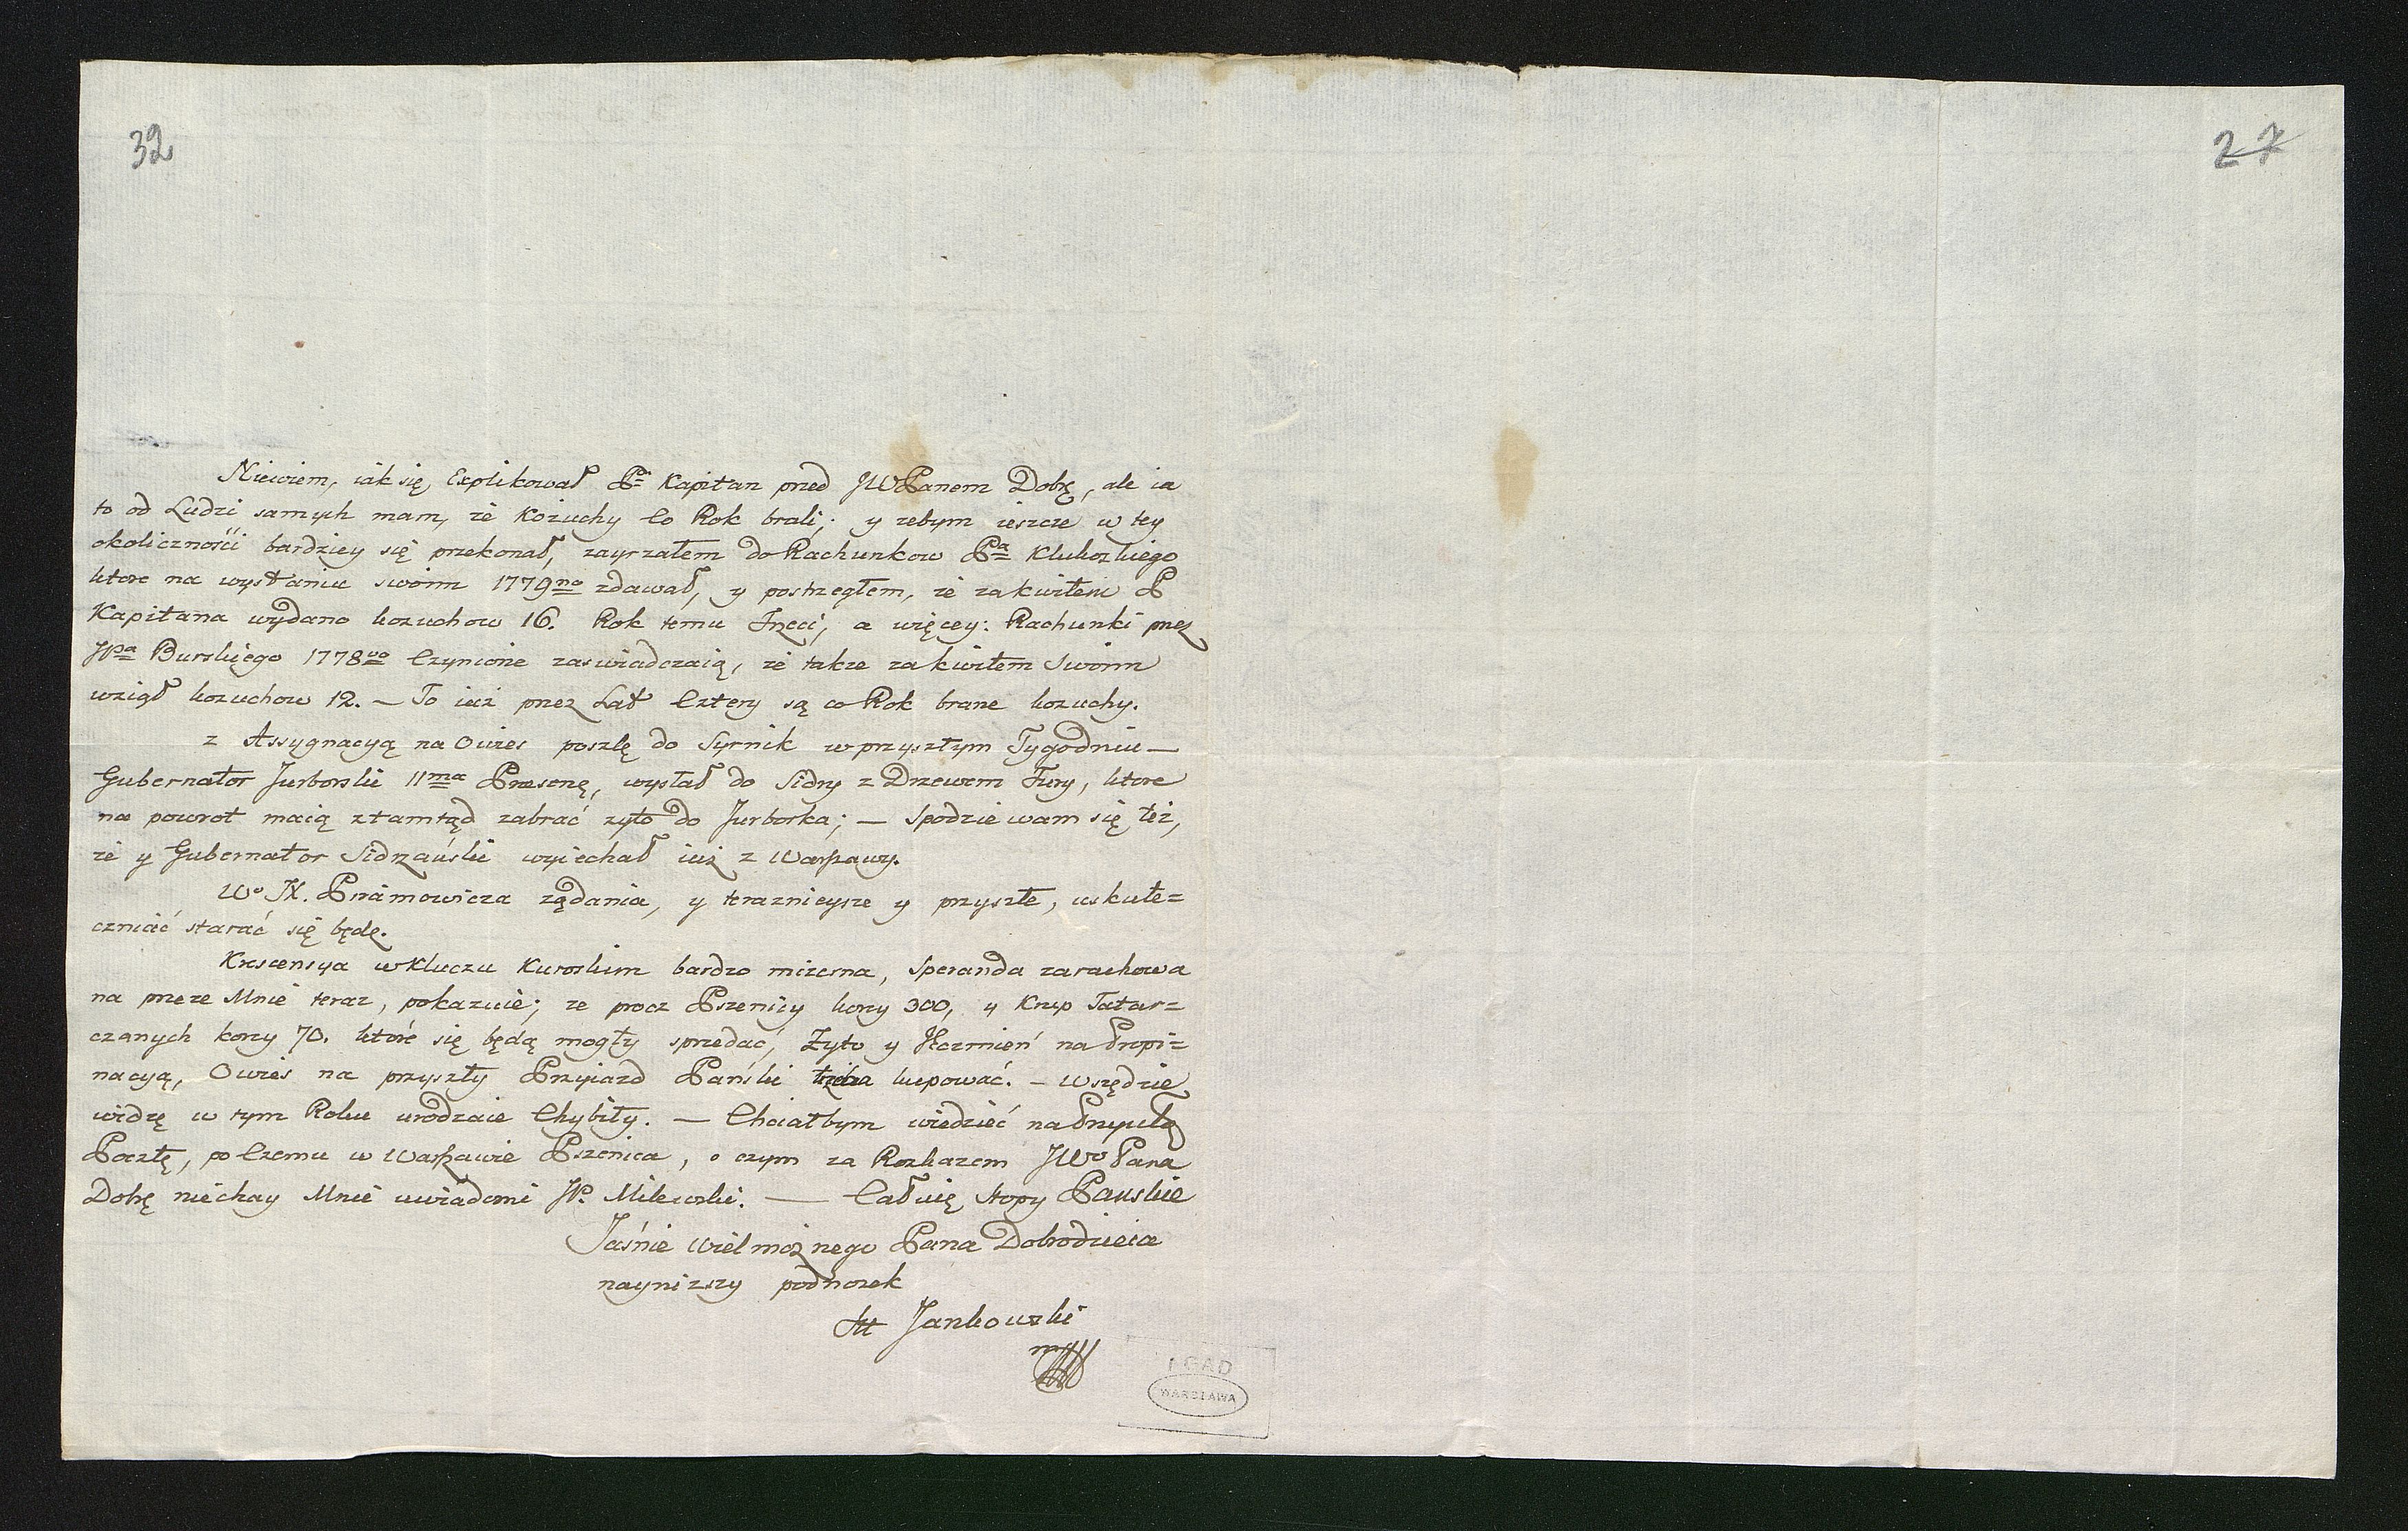 32
27
Niewiem, iak się Explikował P. Kapitan przed JWPanem Dobrę, ale ia
to od Ludzi samych mam, że Kożuchy Co Rok brali; y zebym ieszcze w tey
okolicznosci bardziey się przekonał, zayrzałem do Rachunkow Pa Klukowskiego
ktore na wysłaniu swoim 1779no zdawał, y postrzegłem, że za kwitem P
Kapitana wydano kozuchow 16. Rok temu Trzeci, a więcey: Rachunki przez
JPa Burskiego 1778vo Czynione zaswiadczaią, że takze za kwitem Swoim
wziął kozuchow 12. — To iuż przez Lat Cztery są co Rok brane kozuchy.
z Assygnacyą na Owies poszlę do Syrnik w przyszłym Tygodniu —
Gubernator Jurborski 11ma Præsenę, wysłał do Sidry z Drzewem Fury, ktore
na powrot maią ztamtąd zabrać zyto do Jurborka; — Spodziewam się też,
że y Gubernator Sidrzański wyiechał iuż z Warszawy.
Wo JX. Piramowicza ządania, y teraznieysze y przyszłe, uskute=
czniać starać się będę.
Krescensya w Kluczu Kuroskim bardzo mizerna, Speranda zarachowa
na przeze Mnie teraz, pokazuie; ze procz Pszenicy korcy 300, y Krup Tatar=
czanych korcy 70. które się będą mogły sprzedać, Żyto y Jęczmień na Propi=
nacyą, Owies na przyszły Przyiazd Pański trzeba kupować. — Wszędzie
widzę w tym Roku urodzaie Chybiły. — Chciałbym wiedzieć na Przyszłą
Pocztę, po Czemu w Warszawie Pszenica, o czym za Rozkazem JWo Pana
Dobrę niechay Mnie uwiadomi JP. Milewski. — Całuię Stopy Pańskie
Jaśnie Wielmożnego Pana Dobrodzieia
naynizszy podnozek
M Jankowski
mp
AGAD
WARSZAWA